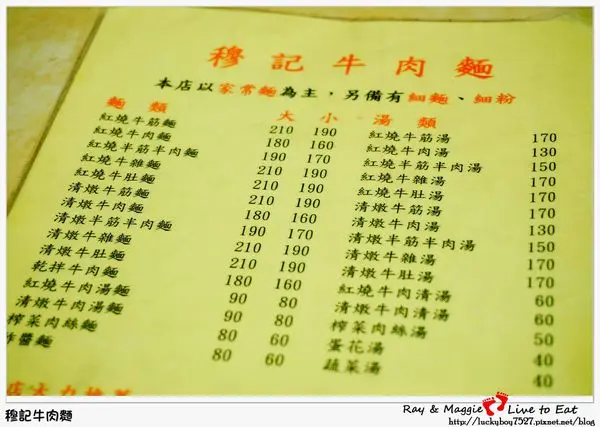 穆記牛肉麵
本店以家常麵為主，另備有細麵、細粉
麵類 大 小 湯類
紅燒牛筋麵 210 190 紅燒牛筋湯 170
紅燒牛肉麵 180 160 紅燒牛肉湯 130
紅燒半筋半肉麵 190 170 紅燒半筋半肉湯 150
紅燒牛雜麵 210 190 紅燒牛雜湯 170
紅燒牛肚麵 210 190 紅燒牛肚湯 170
清燉牛筋麵 210 190 清燉牛筋湯 170
清燉牛肉麵 180 160 清燉牛肉湯 130
清燉半筋半肉麵 190 170 清燉半筋半肉湯 150
清燉牛雜麵 210 190 清燉牛雜湯 170
清燉牛肚麵 210 190 清燉牛肚湯 170
乾拌牛肉麵 180 160 紅燒牛肉清湯 60
紅燒牛肉湯麵 90 80 清燉牛肉清湯 60
清燉牛肉湯麵 90 80 榨菜肉絲湯 50
榨菜肉絲麵 80 60 蛋花湯 40
炸醬麵 80 60 蔬菜湯 40
穆記牛肉麵
Ray & Maggie Live to Eat
http://luckyboy7527.pixnet.net/blog